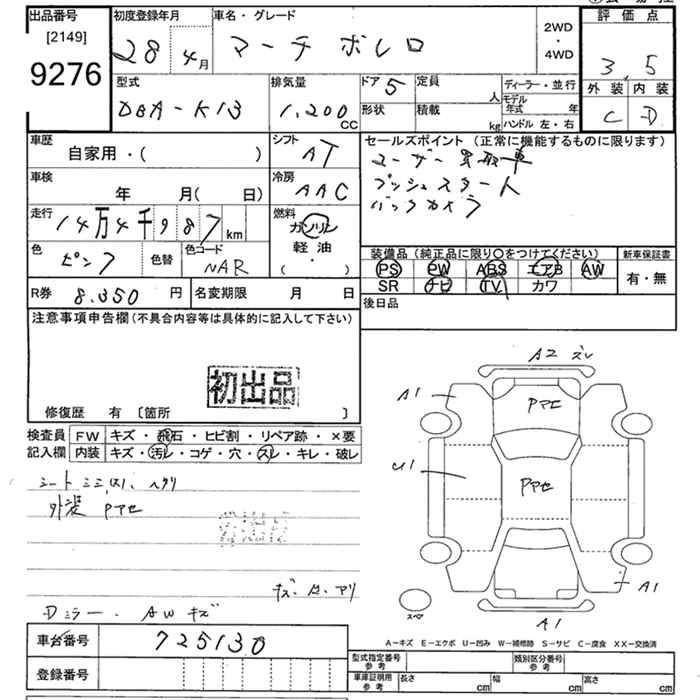 出品番号 初度登録年月 車名・グレード 評価点
[2149]
9276
28年4月 マーチ ボレロ 2WD・4WD 3.5
外装 内装
C D
型式 排気量 ドア 定員 ディーラー・並行
DBA-K13 1,200cc 5 人 モデル年式 年
形状 積載 kg ハンドル 左・右
車歴 シフト セールスポイント (正常に機能するものに限ります)
自家用・( ) AT ユーザー買取車
車検 冷房 プッシュスタート
年 月( 日) AAC バックカメラ
走行 燃料
14万4千987km ガソリン
軽油
・( )
色 色替 色コード
ピンク NAR
装備品 (純正品に限り〇をつけてください) 新車保証書
PS PW ABS エアB AW 有・無
SR ナビ TV カワ
R券 8.350円 名変期限 月 日 後日品
注意事項申告欄(不具合内容等は具体的に記入して下さい)
初出品
修復歴 有 〔箇所 〕
検査員 FW キズ・飛石・ヒビ割・リペア跡・×要
記入欄 内装 キズ・汚レ・コゲ・穴・スレ・キレ・破レ
外装 Pヤセ
Dミラー、AWキズ
車台番号 725130
登録番号
A2 ズレ
A1
Pヤセ
U1
Pヤセ
A1
A1
スペア
A-キズ E-エクボ U-凹み W-補修跡 S-サビ C-腐食 XX-交換済
型式指定番号 参考 類別区分番号 参考
車庫証明用 参考 長さ cm 幅 cm 高さ cm